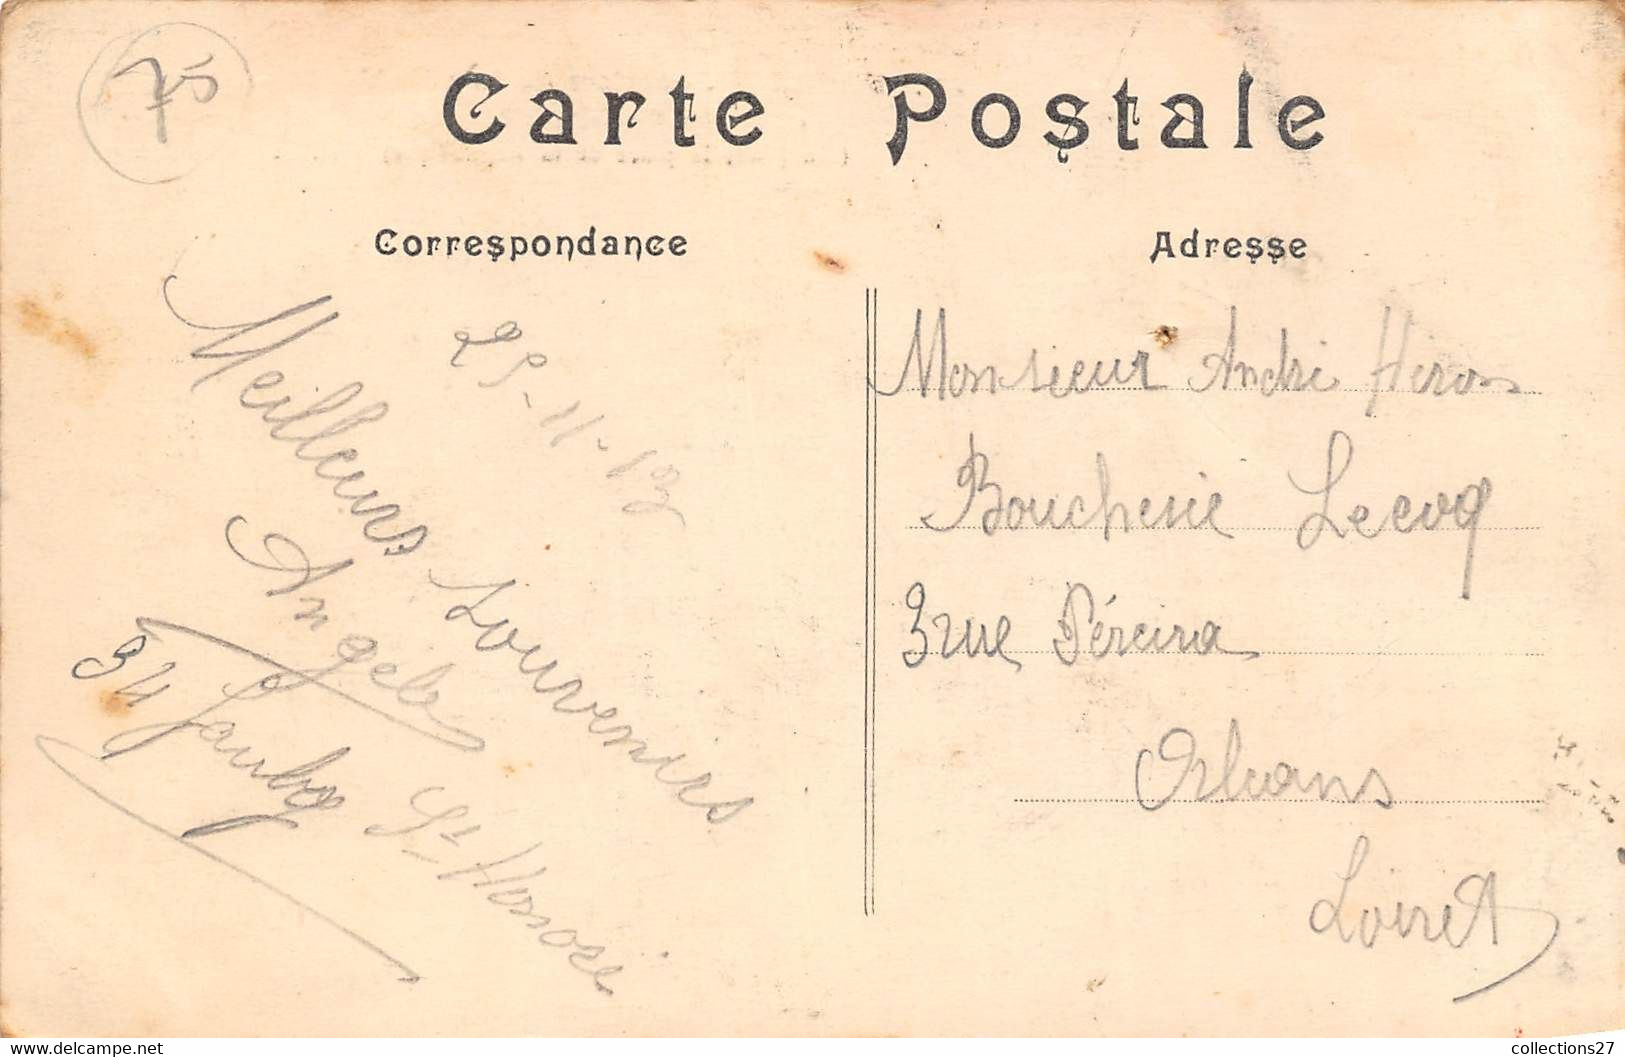 75
Carte Postale
Correspondance
Adresse
25-11-13
Meilleurs Souvenirs
Angèle
34 Faubg St Honoré
Monsieur André Hiron
Boucherie Lecoq
3 rue Péreira
Orléans
Loiret
collections27